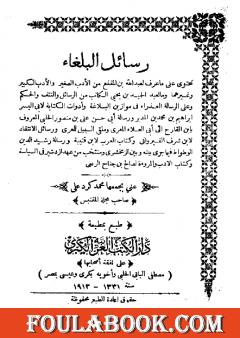 رسائل البلغاء
تحتوي على ما عرف لعبدالله بن المقفع من الأدب الصغير والأدب الكبير
وغيرهما وما لعبد الحميد بن يحيى الكاتب من الرسائل والنتف والحكم
وعلى الرسالة العذراء في موازين البلاغة وأدوات الكتابة لابي اليسر
ابراهيم بن محمد بن المدبر ورسالة أبي حسن علي بن منصور الحلبي المعروف
بابن القارح الى أبي العلاء المعري وملقى السبيل للمعري ورسائل الانتقاد
لابن شرف القيرواني وكتاب العرب لابن قتيبة ورسالة رشيد الدين
الوطواط فيما جرى بينه وبين الزمخشري ومنتخب من عهد أردشير في السياسة
وكتاب الادب والمروءة لصالح بن جناح الربعي
عني بجمعها محمد كرد علي
صاحب مجلة المقتبس
طبع بمطبعة
دار الكتب العربية الكبرى
على نفقة أصحابها
مصطفى البابي الحلبي وأخويه بكري وعيسى بمصر
سنة ١٣٣١ – ١٩١٣
حقوق إعادة الطبع محفوظة
FOULABOOK.COM